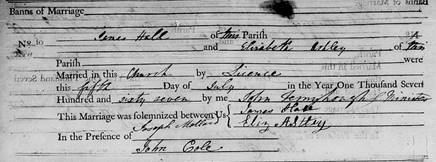 Banns of Marriage
No 10 James Hall of this Parish
and Elizabeth Astley of this
Parish were
Married in this Church by Licence
this fifth Day of July in the Year One Thousand Seven
Hundred and sixty seven by me John Minister
This Marriage was solemnized between Us James Hall
Eliz Astley
In the Presence of Joseph
John Cole